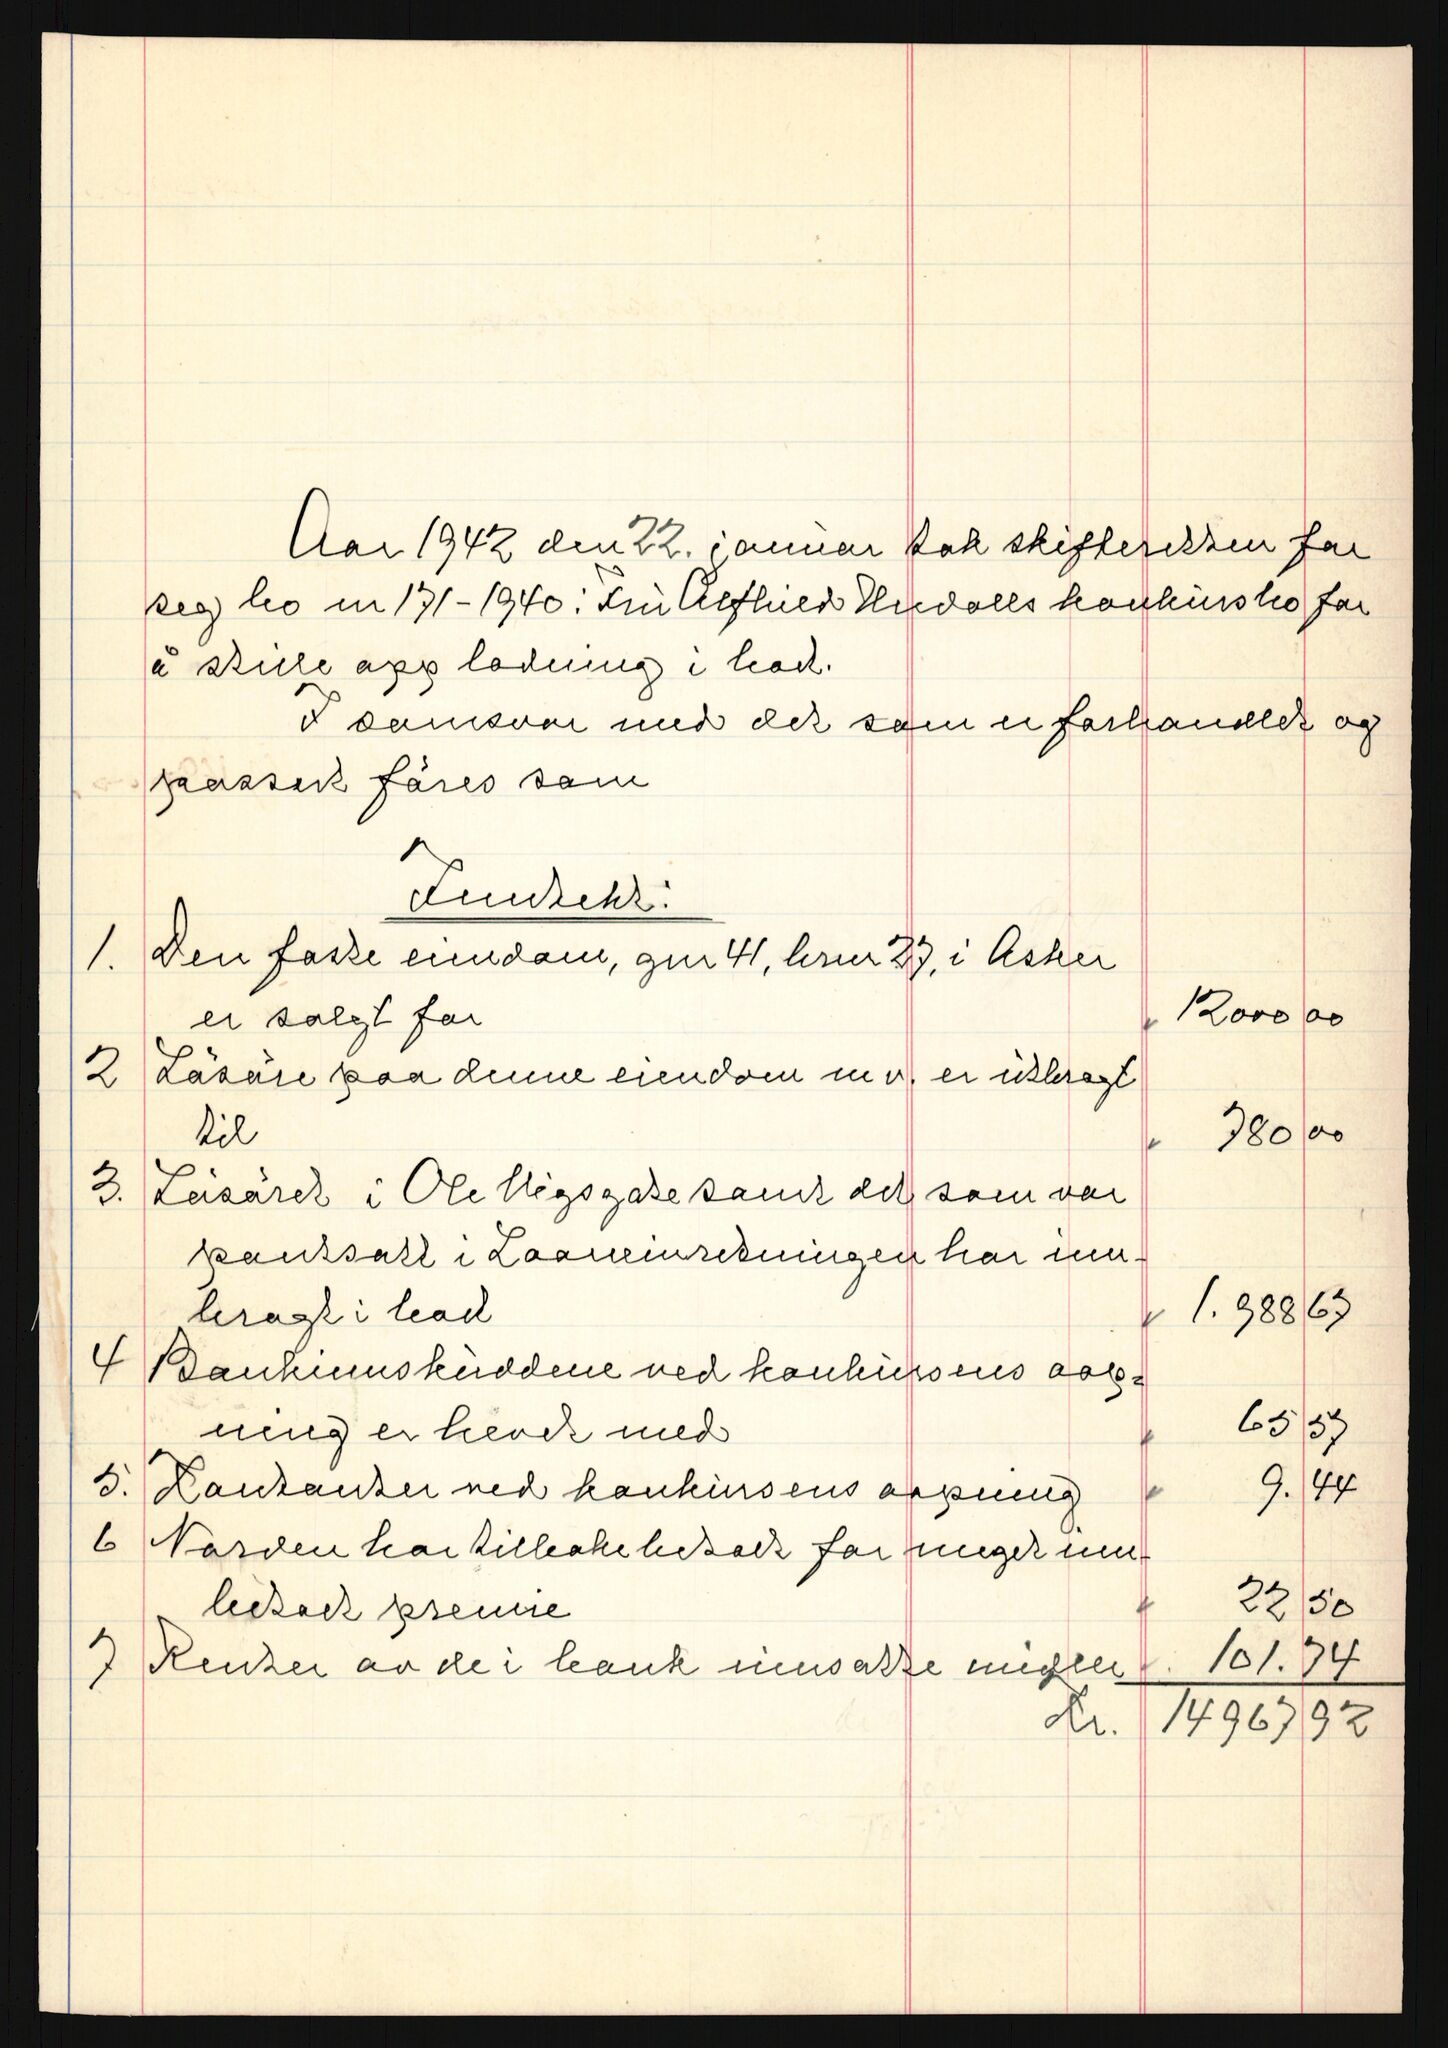 Aar 1942 den 22. januar tok skifteretten for
seg bo nr 171-1940: Fru Alfhild konkursbo for
å stille opp lodning i boet.
I samsvar med det som er forhandlet og
passert føres som
Inntekt:
1. Den faste eiendom, gnr 41, brnr 27, i Asker
er solgt for " 12000 00
2 Løsøre paa denne eiendom m v. er utbragt
til " 780 00
3. Løsøret i Ole Vigsgate samt det som var
pantsatt i Laaneinretningen har inn-
bragt i boet " 1.988 67
4 Bankinnskuddene ved konkursens aap=
ning er hevet med " 65 57
5. Kontanter ved konkursens aapning " 9.44
6 Norden har tilbakebetalt for meget inn-
betalt premie " 22 50
7 Renter av de i bank innsatte midler " 101.74
Kr. 14967 92